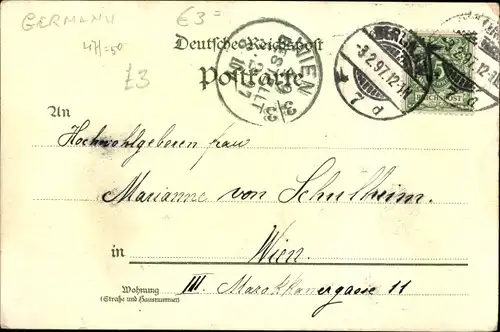 GERMANY
€3=
4H=50
£3
Deutsche Reichspost
Postkarte
WIEN 3/3
BESTELLT
9. 2. 97
BERLIN
-8.2.97.12-1N.
7 d
REICHSPOST
An
Hochwohlgeboren Frau
Marianne von Schulheim.
in Wien.
Wohnung
(Straße und Hausnummer)
III. Marokkanergasse 11